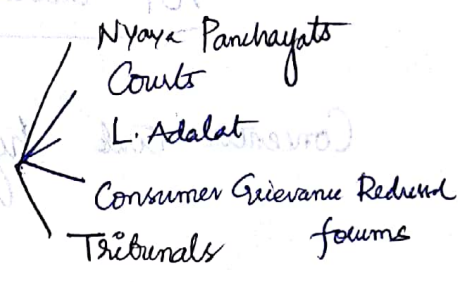 Nyaya Panchayats
Courts
L. Adalat
Consumer Grievance Redressal
forums
Tribunals